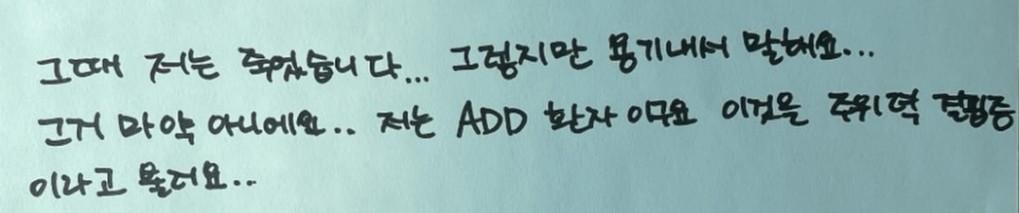 그때 저는 죽었습니다... 그렇지만 용기내서 말해요...
그거 마약 아니에요.. 저는 ADD 환자 이구요 이것은 주위력 결핍증
이라고 불러요..